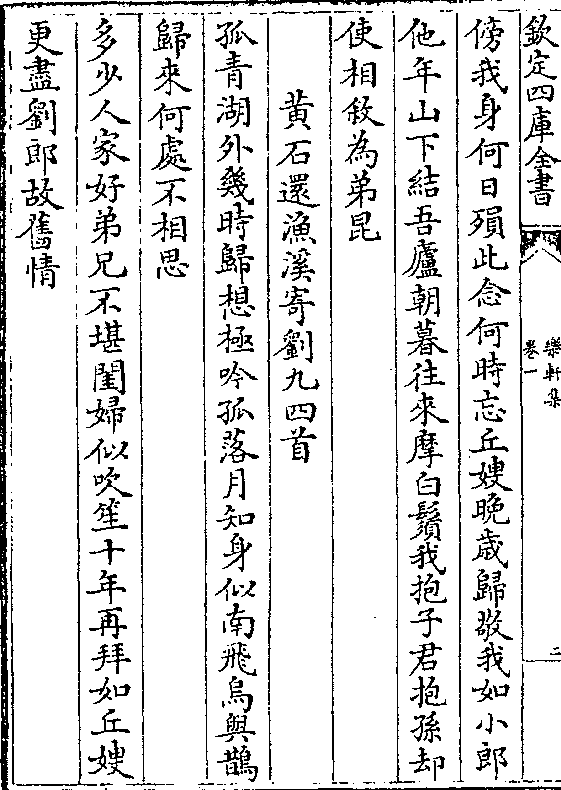 欽定四庫全書
樂軒集
卷一
二
傍我身何日殞此念何時忘丘嫂晚歲歸敬我如小郎
他年山下結吾廬朝暮往來摩白鬚我抱子君抱孫却
使相敘為弟昆
黄石還漁溪寄劉九四首
孤青湖外幾時歸想極吟孤落月知身似南飛烏與鵲
歸來何處不相思
多少人家好弟兄不堪閨婦似吹笙十年再拜如丘嫂
更盡劉郎故舊情